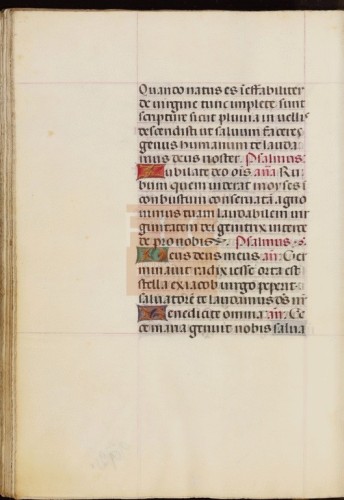 Quando natus es ieffabiliter
de virgine tunc implete sunt
scripture sicut pluvia in vellꝰ
descendisti ut salvum faceres
genus humanum te lauda
mus deus noster. Psalmus.
Iubilate deo oīs aña Ru
bum quem viderat moyses i
combustum conservatā agno
vimus tuam laudabilem vir
ginitatem dei genitrix intercede
de pro nobis. Psalmus.
Deus deus meus añ. Ger
minavit radix iesse orta est
stella ex iacob virgo peperit
salvatorē te laudamus ds nr
Benedicite omnia añ. Ec
ce maria genuit nobis salva